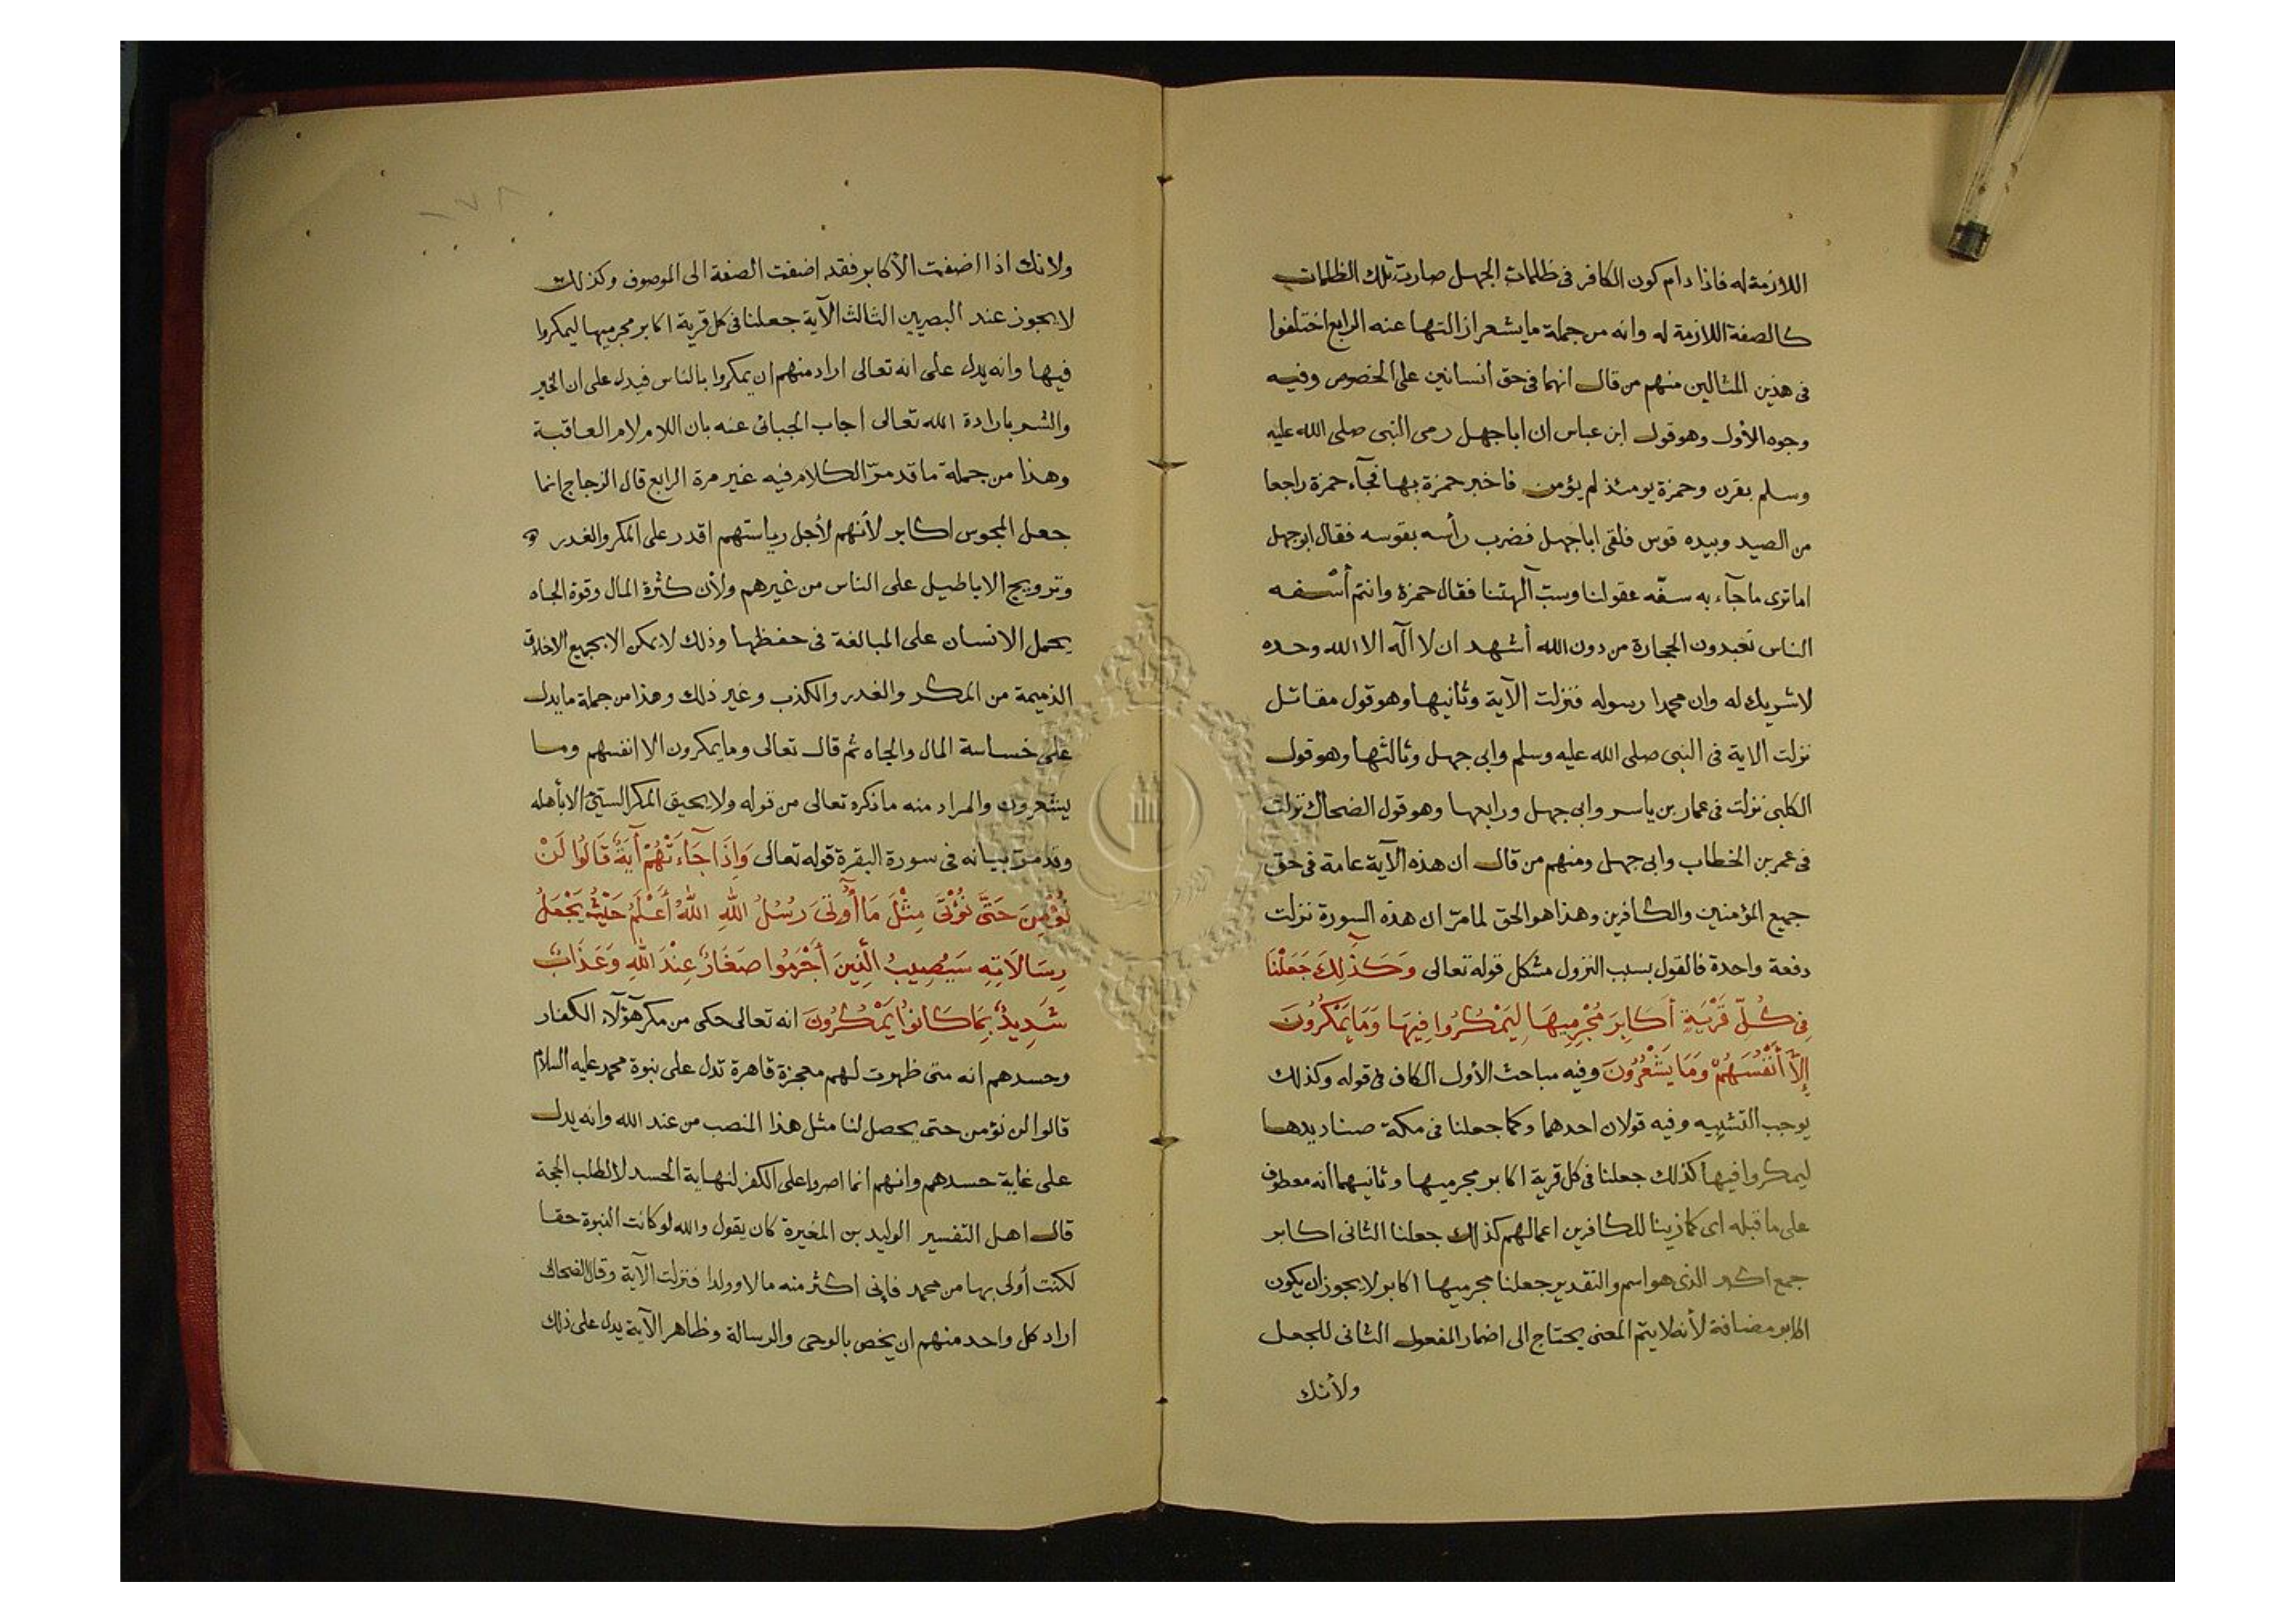 اللازمة له فاذا دام كون الكافر في ظلمات الجهل صارت تلك الظلمات
كالصفة اللازمة له وانه من جملة ما يشعر ازالتها عنه الرابع اختلفوا
في هذين المثالين منهم من قال انهما في حق انسانين على الخصوص وفيه
وجوه الأول وهو قول ابن عباس ان ابا جهل رمى النبي صلى الله عليه
وسلم بقرن وحمزة يومئذ لم يؤمن فاخبر حمزة بها فجآء حمزة راجعا
من الصيد وبيده قوس فلقى ابا جهل فضرب رأسه بقوسه فقال ابو جهل
اما ترى ما جآء به سفّه عقولنا وسبّ آلهتنا فقال حمزة وانتم أسفه
الناس تعبدون الحجارة من دون الله أشهد ان لا اله الا الله وحده
لا شريك له وان محمدا رسوله فنزلت الآية وثانيها وهو قول مقاتل
نزلت الاية في النبي صلى الله عليه وسلم وابى جهل وثالثها وهو قول
الكلبي نزلت في عمار بن ياسر وابى جهل ورابعها وهو قول الضحاك نزلت
في عمر بن الخطاب وابى جهل ومنهم من قال ان هذه الآية عامة في حق
جميع المؤمنين والكافرين وهذا هو الحق لما مرّ ان هذه السورة نزلت
دفعة واحدة فالقول بسبب النزول مشكل قوله تعالى وَكَذٰلِكَ جَعَلْنَا
فِي كُلِّ قَرْيَةٍ أَكَابِرَ مُجْرِمِيهَا لِيَمْكُرُوا فِيهَا وَمَا يَمْكُرُونَ
إِلَّا أَنْفُسَهُمْ وَمَا يَشْعُرُونَ وفيه مباحث الأول الكاف في قوله وكذلك
يوجب التشبيه وفيه قولان احدهما وكما جعلنا في مكة صناديدها
ليمكروا فيها كذلك جعلنا في كل قرية اكابر مجرميها وثانيهما انه معطوف
على ما قبله اى كما زينا للكافرين اعمالهم كذلك جعلنا الثاني اكابر
جمع اكبر الذي هو اسم والتقدير جعلنا مجرميها اكابر لا يجوز ان يكون
اكابر مضافة لأنه لا يتم المعنى يحتاج الى اضمار المفعول الثاني للجعل
ولأنك
ولانك اذا اضفت الأكابر فقد اضفت الصفة الى الموصوف وكذلك
لا يجوز عند البصريين الثالث الآية جعلنا في كل قرية اكابر مجرميها ليمكروا
فيها وانه يدل على انه تعالى اراد منهم ان يمكروا بالناس فيدل على ان الخير
والشر بارادة الله تعالى اجاب الجبائى عنه بان اللام لام العاقبة
وهذا من جملة ما قد مرّ الكلام فيه غير مرة الرابع قال الزجاج انما
جعل المجوس اكابر لأنهم لأجل رياستهم اقدر على المكر والغدر و
وترويج الاباطيل على الناس من غيرهم ولأن كثرة المال وقوة الجاه
يحمل الانسان على المبالغة في حفظها وذلك لا يمكن الا بجميع الاخلاق
الذميمة من المكر والغدر والكذب وغير ذلك وهذا من جملة ما يدل
على خساسة المال والجاه ثم قال تعالى وما يمكرون الا انفسهم وما
يشعرون والمراد منه ما ذكره تعالى من قوله ولا يحيق المكر السيّئ الا بأهله
وقد مرّ بيانه في سورة البقرة قوله تعالى وَإِذَا جَآءَتْهُمْ آيَةٌ قَالُوا لَنْ
نُؤْمِنَ حَتَّى نُؤْتَى مِثْلَ مَا أُوتِيَ رُسُلُ اللّٰهِ اللّٰهُ أَعْلَمُ حَيْثُ يَجْعَلُ
رِسَالَاتِهِ سَيُصِيبُ الَّذِينَ أَجْرَمُوا صَغَارٌ عِنْدَ اللّٰهِ وَعَذَابٌ
شَدِيدٌ بِمَا كَانُوا يَمْكُرُونَ انه تعالى حكى من مكر هؤلآء الكفار
وحسدهم انه متى ظهرت لهم معجزة قاهرة تدل على نبوة محمد عليه السلام
قالوا لن نؤمن حتى يحصل لنا مثل هذا المنصب من عند الله وانه يدل
على غاية حسدهم وانهم انما اصروا على الكفر لنهاية الحسد لا لطلب الحجة
قال اهل التفسير الوليد بن المغيرة كان يقول والله لو كانت النبوة حقا
لكنت أولى بها من محمد فإني اكثر منه مالا وولدا فنزلت الآية وقال الضحاك
اراد كل واحد منهم ان يخص بالوحى والرسالة وظاهر الآية يدل على ذلك